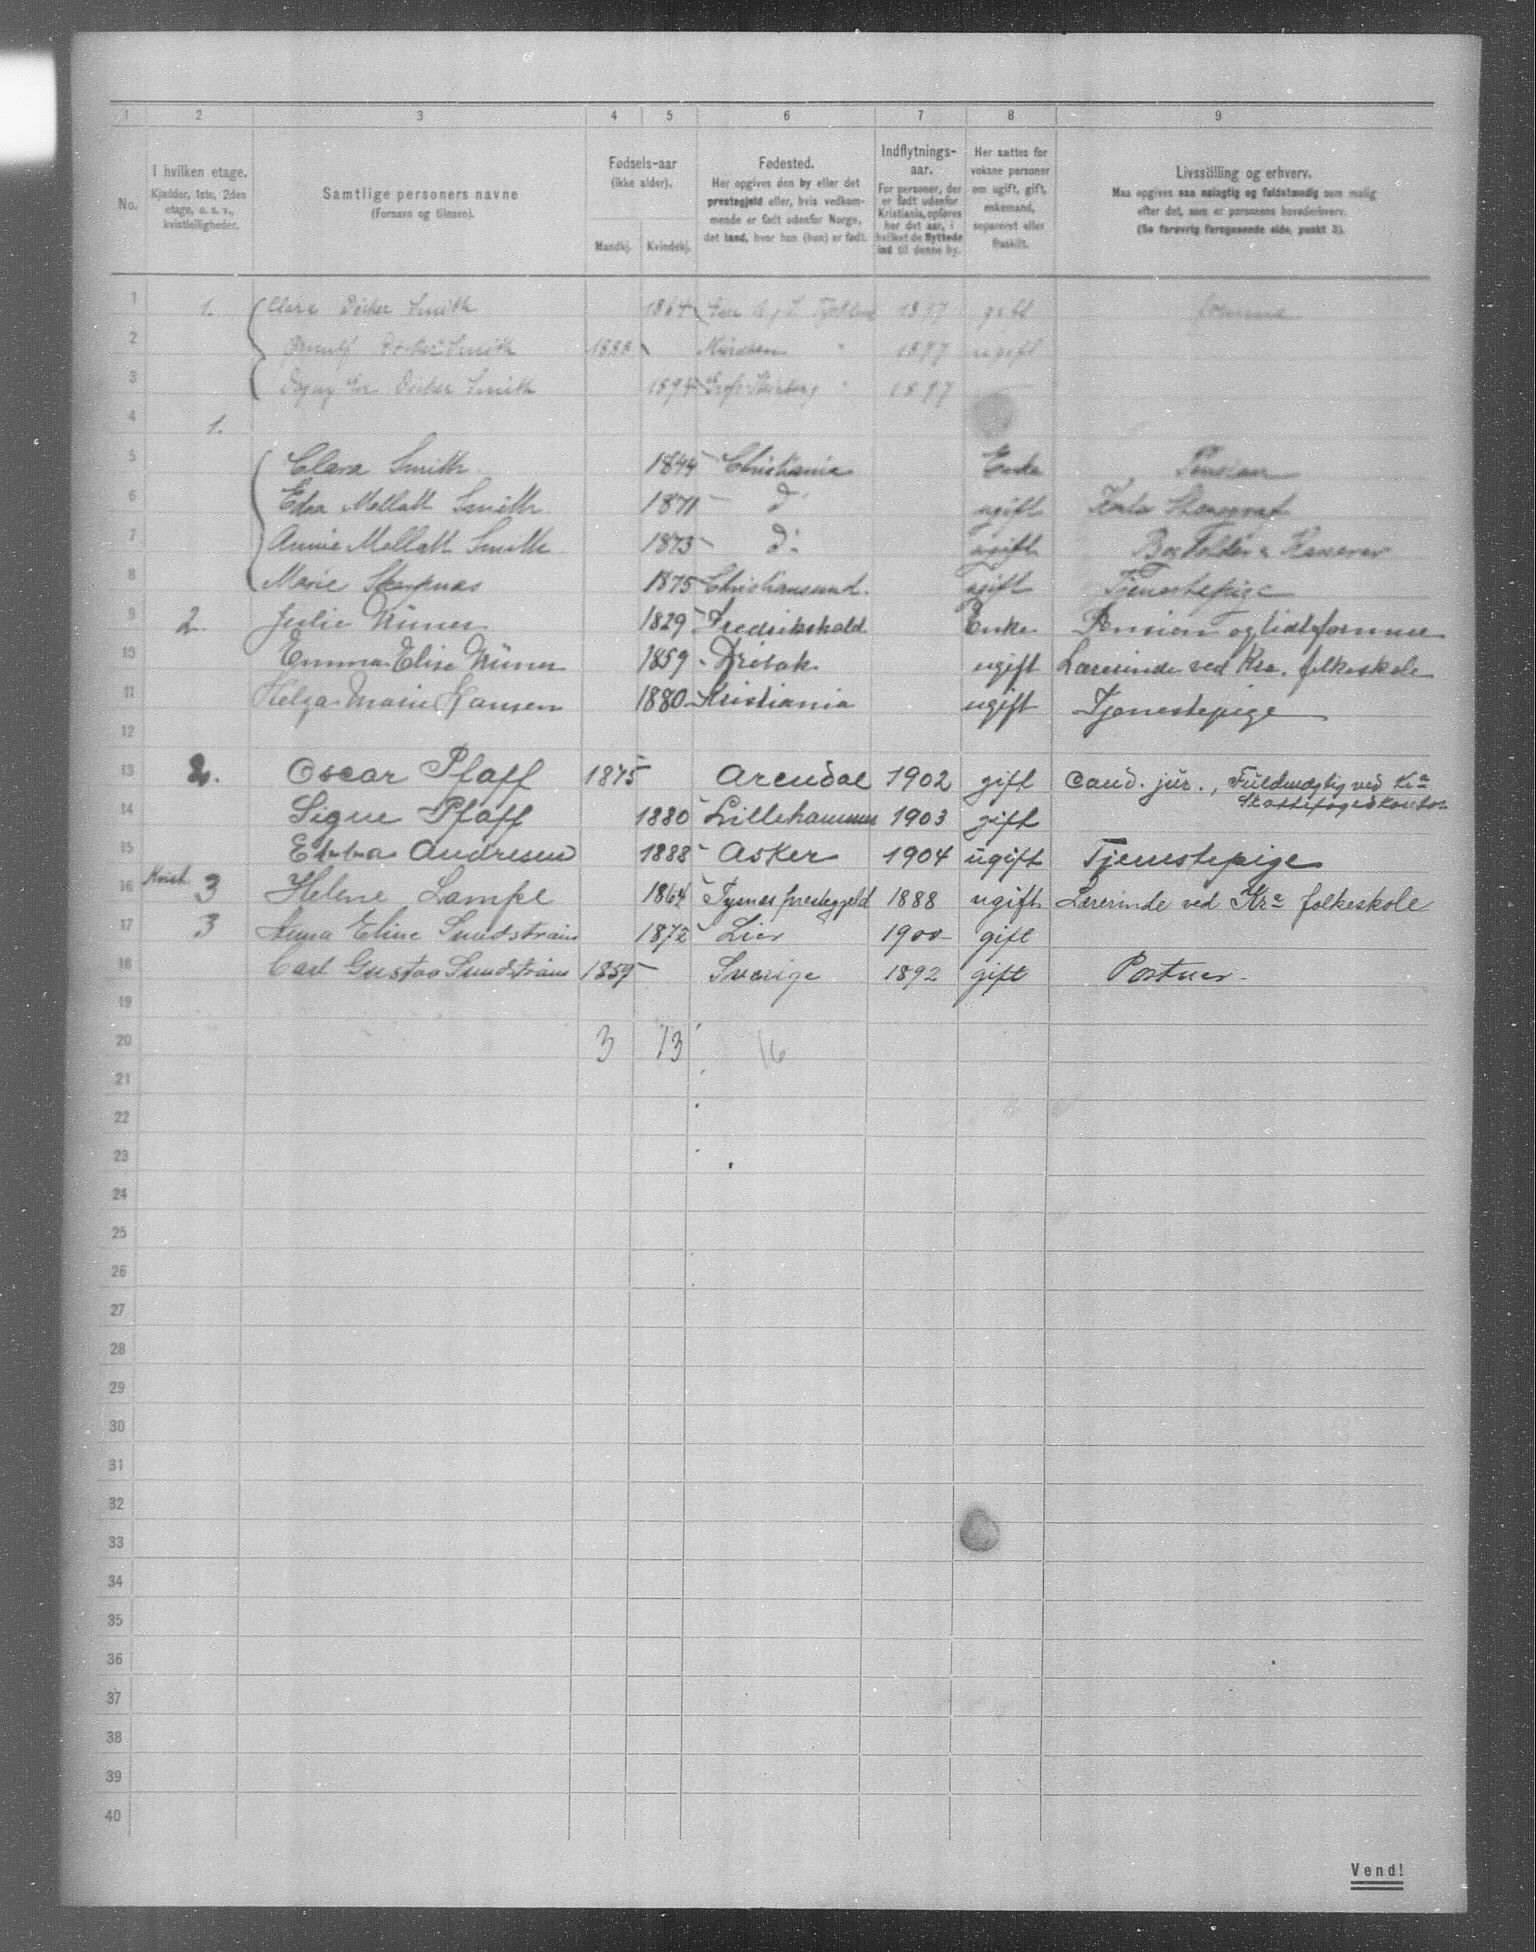 1 2 3 4 5 6 7 8 9
No. | I hvilken etage. Kjælder, 1ste, 2den etage, o. s. v., kvistleiligheder. | Samtlige personers navne (Fornavn og tilnavn). | Fødsels-aar (ikke alder). Mandkj. Kvindekj. | Fødested. Her opgives den by eller det prestegjeld eller, hvis vedkommende er født udenfor Norge, det land, hvor han (hun) er født. | Indflytnings-aar. For personer, der er født udenfor Kristiania, opføres her det aar, i hvilket de flyttede ind til denne by. | Her sættes for voksne personer om ugift, gift, enkemand, separeret eller fraskilt. | Livsstilling og erhverv. Maa opgives saa nøiagtig og fuldstændig som mulig efter det, som er personens hovederhverv. (Se forøvrig foregaaende side, punkt 3).
1 1. Clara Smith 1864 gift
2 Smith 1888 ugift
3 Smith
4 1.
5 Clara Smith 1844 Christiania Enke Pension
6 Edra Mollatt Smith 1871 d° ugift
7 Annie Mollatt Smith 1873 d° ugift
8 Marie 1875 Christiansund. ugift Tjenestepige
9 2. Julie 1829 Fredrikshald Enke Pension og lidt formue
10 Emma Elise 1859 Drøbak ugift Lærerinde ved Kra. folkeskole
11 Helga Marie Hansen 1880 Kristiania ugift Tjenestepige
12
13 2. Oscar Pfaff 1875 Arendal 1902 gift Cand. jur., Fuldmægtig ved Kra
14 Signe Pfaff 1880 Lillehammer 1903 gift
15 Ebba Andresen 1888 Asker 1904 ugift Tjenestepige
16 Kvist 3 Helene Lampe 1864 Tysnæs prestegjeld 1888 ugift Lærerinde ved Kra folkeskole
17 3 Anna Eline Sundstrøm 1872 Lier 1900 gift
18 Carl Gustav Sundstrøm 1859 Sverige 1892 gift Portner
19
20 3 13 16
21
22
23
24
25
26
27
28
29
30
31
32
33
34
35
36
37
38
39
40
Vend!